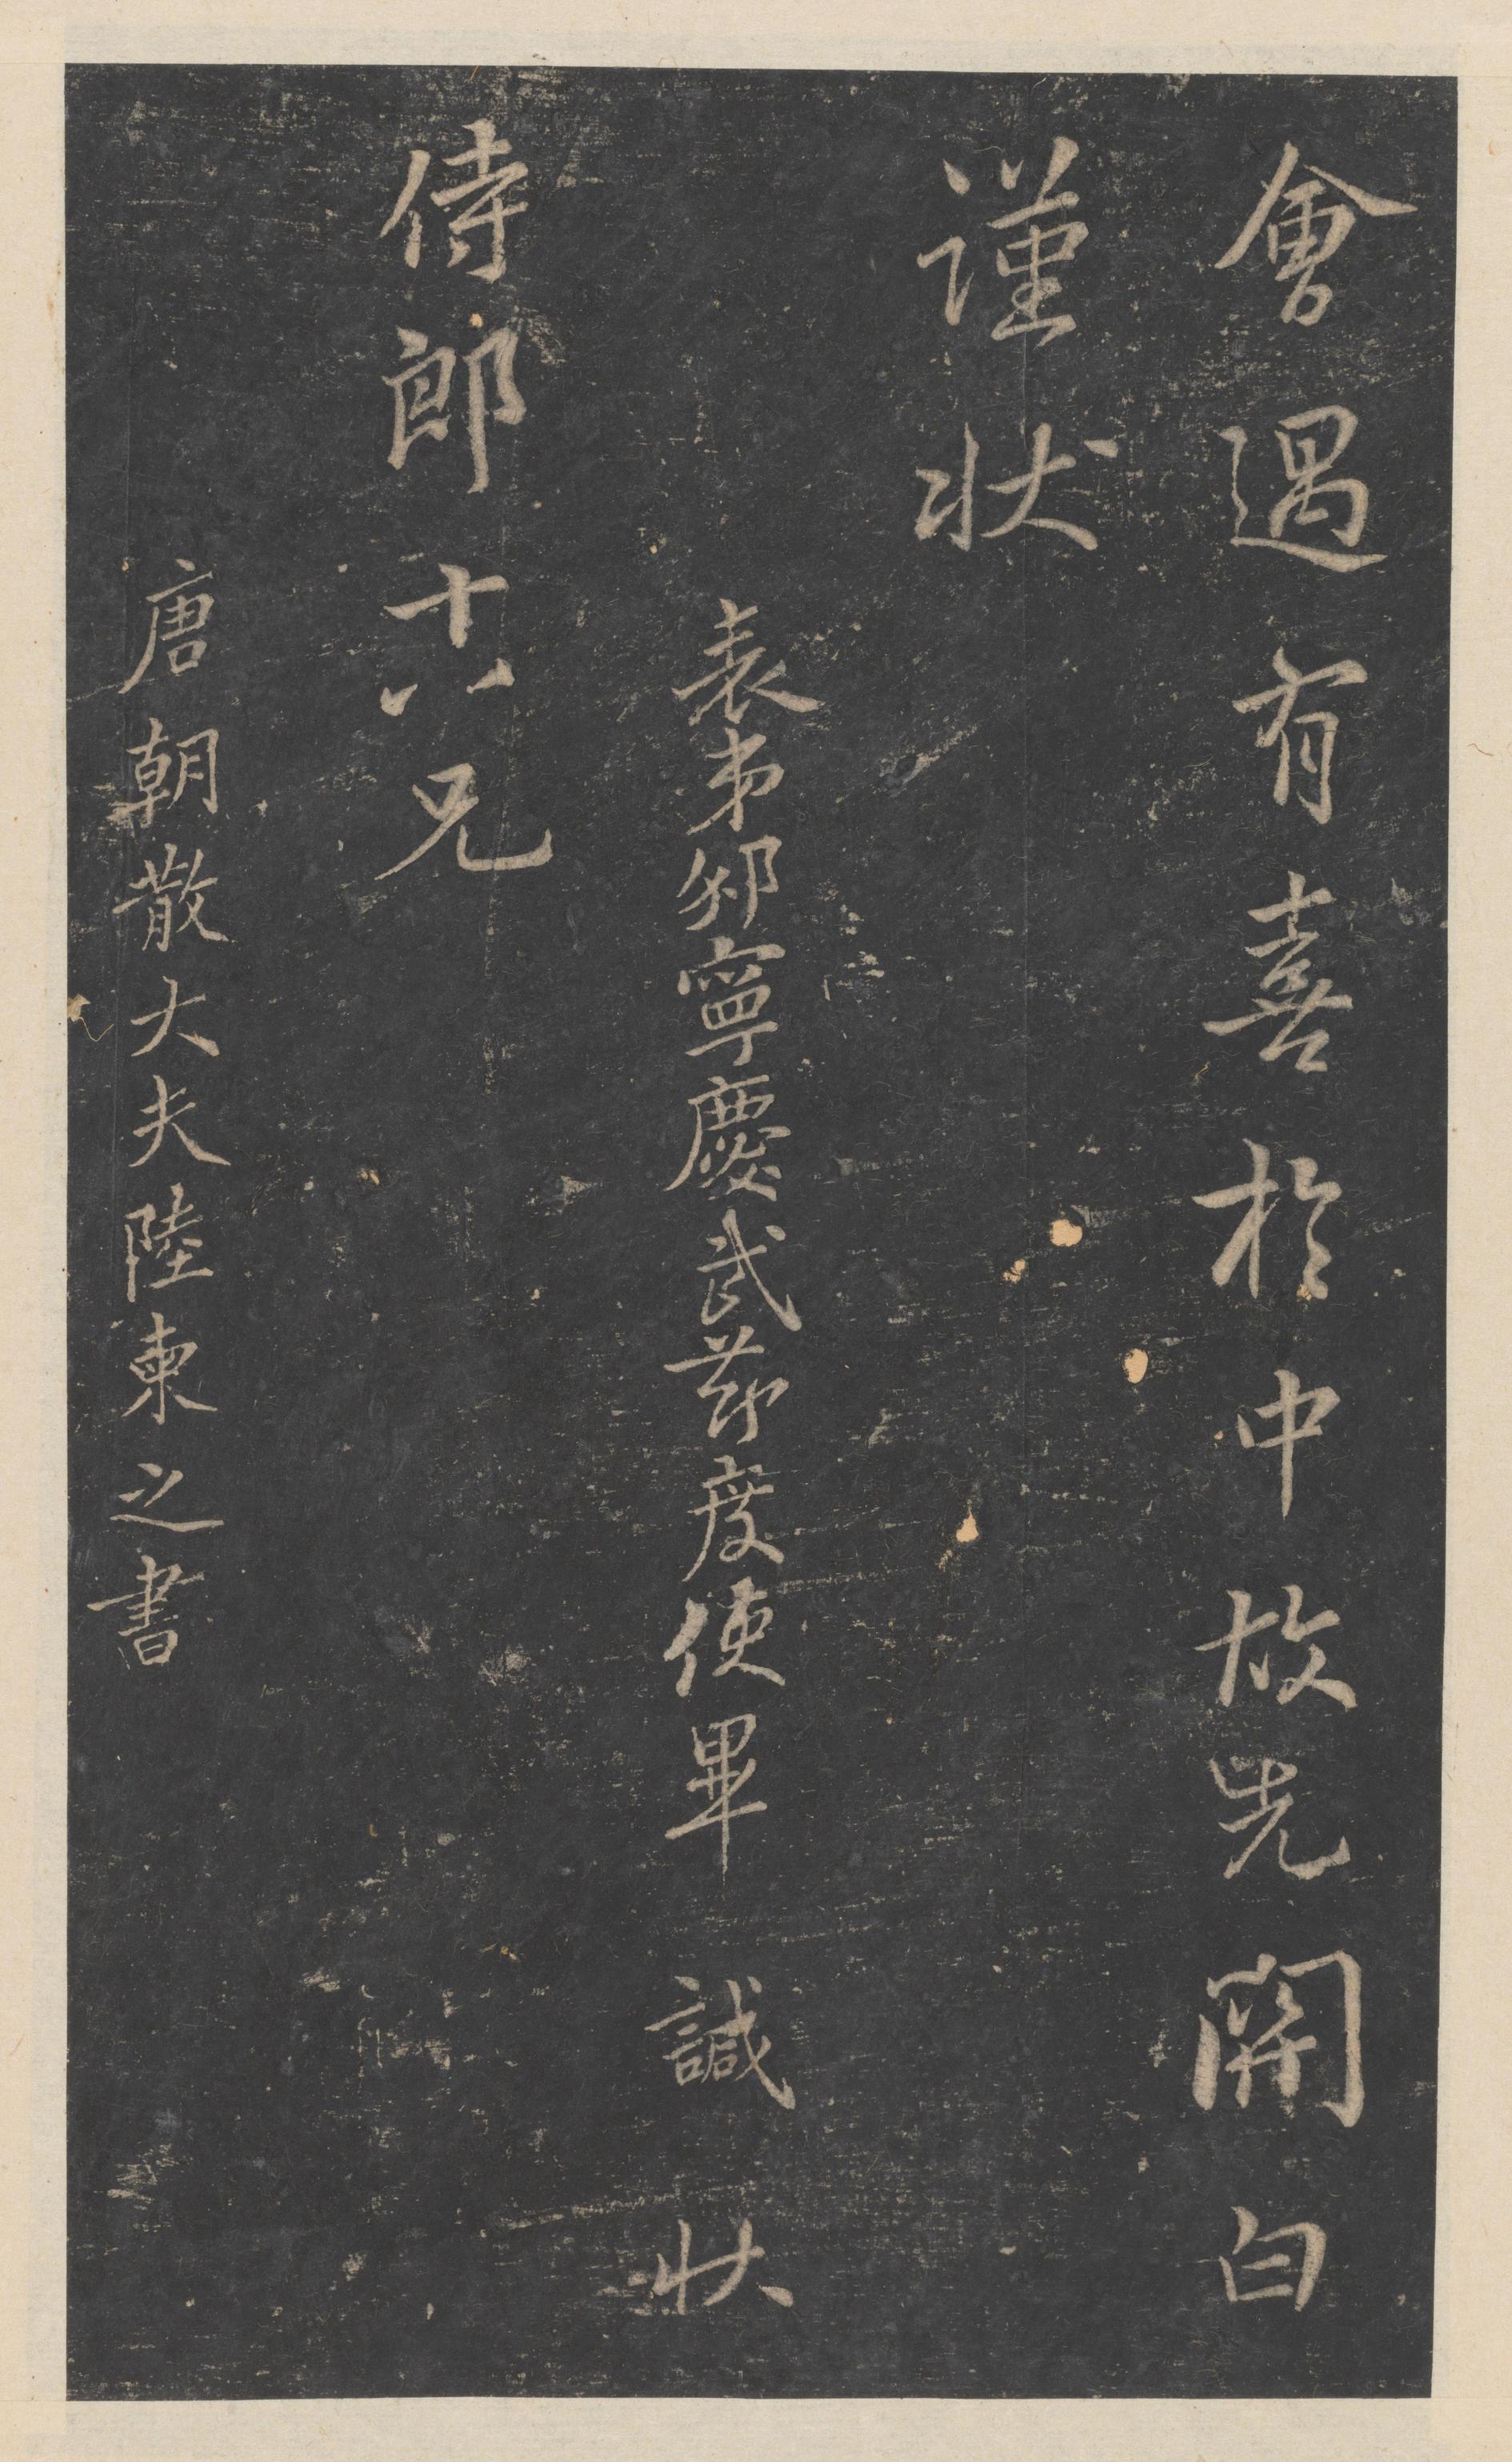 會遇有喜於中故先開白
謹狀
表弟邠寧慶武節度使畢諴狀
侍郎十八兄
唐朝散大夫陸柬之書